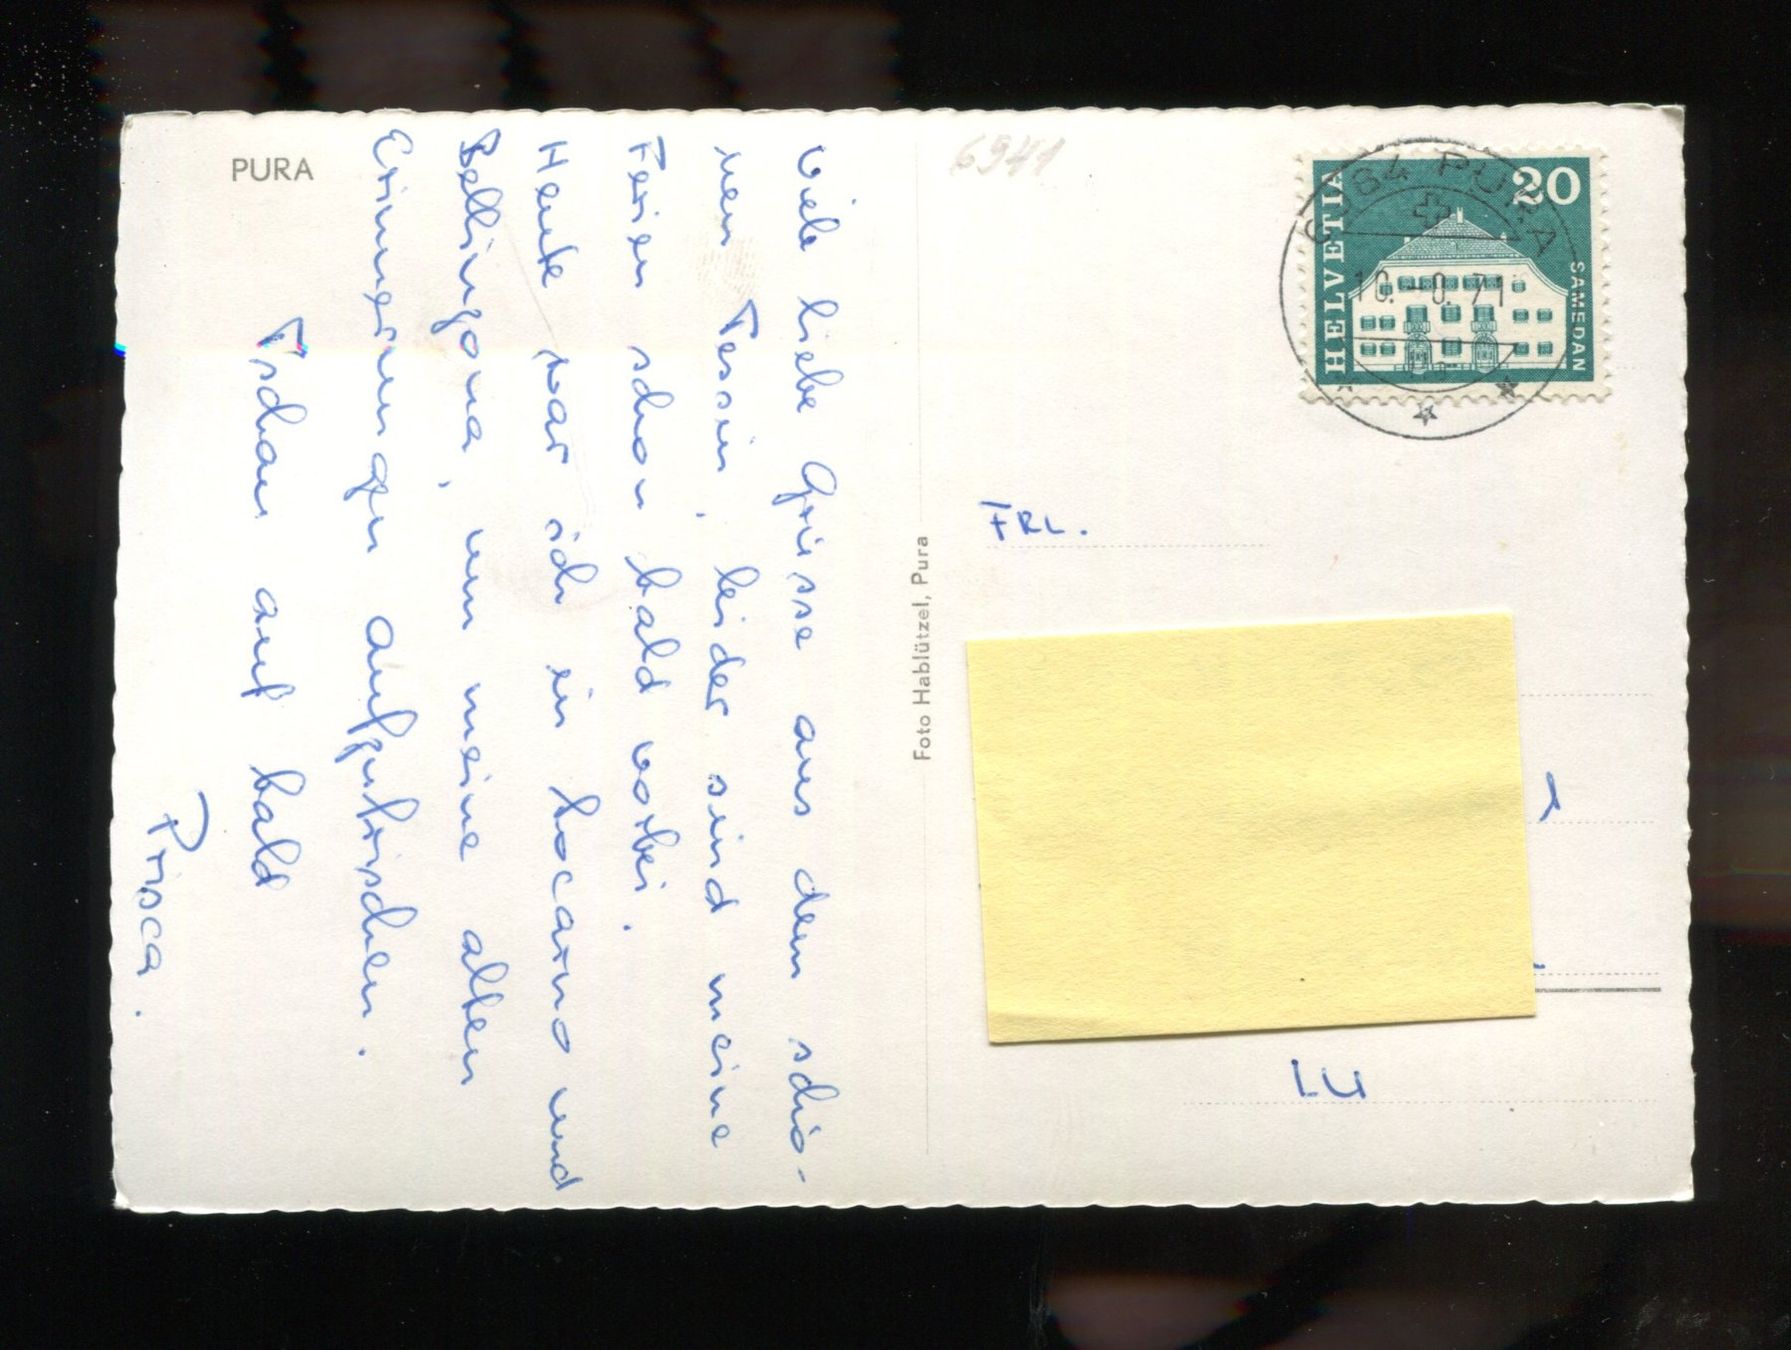 PURA
viele liebe Grüsse aus dem schö-
nen Tessin, leider sind meine
Ferien schon bald vorbei.
Heute war ich in Locarno und
Bellinzona, um meine alten
Erinnerungen aufzufrischen.
Tschau auf bald
Prisca.
Foto Hablützel, Pura
6941
HELVETIA
20
SAMEDAN
6984 PURA
FRL.
LU